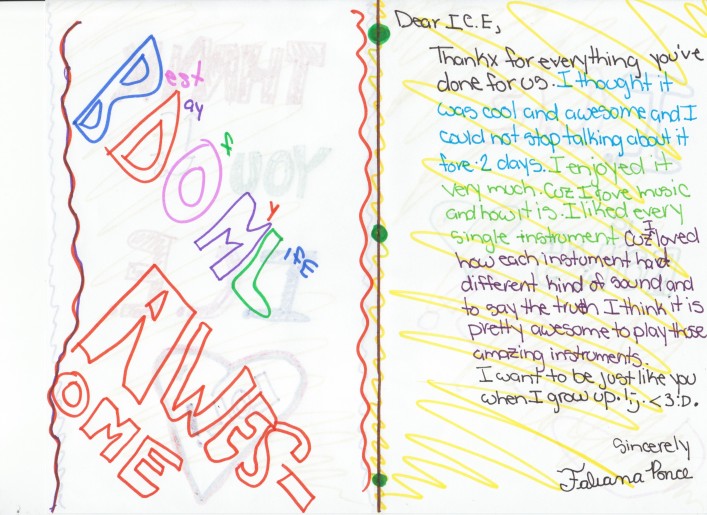 Best
Day
Of
My
LifE
AWES-
OME
Dear I.C.E,
Thankx for everything you've
done for us. I thought it
was cool and awesome and I
could not stop talking about it
fore 2 days. I enjoyed it
very much. Cuz I love music
and how it is. I liked every
single instrument Cuz I loved
how each instument had
different kind of sound and
to say the truth I think it is
pretty awesome to play those
amazing instruments.
I want to be just like you
when I grow up. !;j. <3 :D.
Sincerely
Fabiana Ponce
THANK
YOU
I.C.E